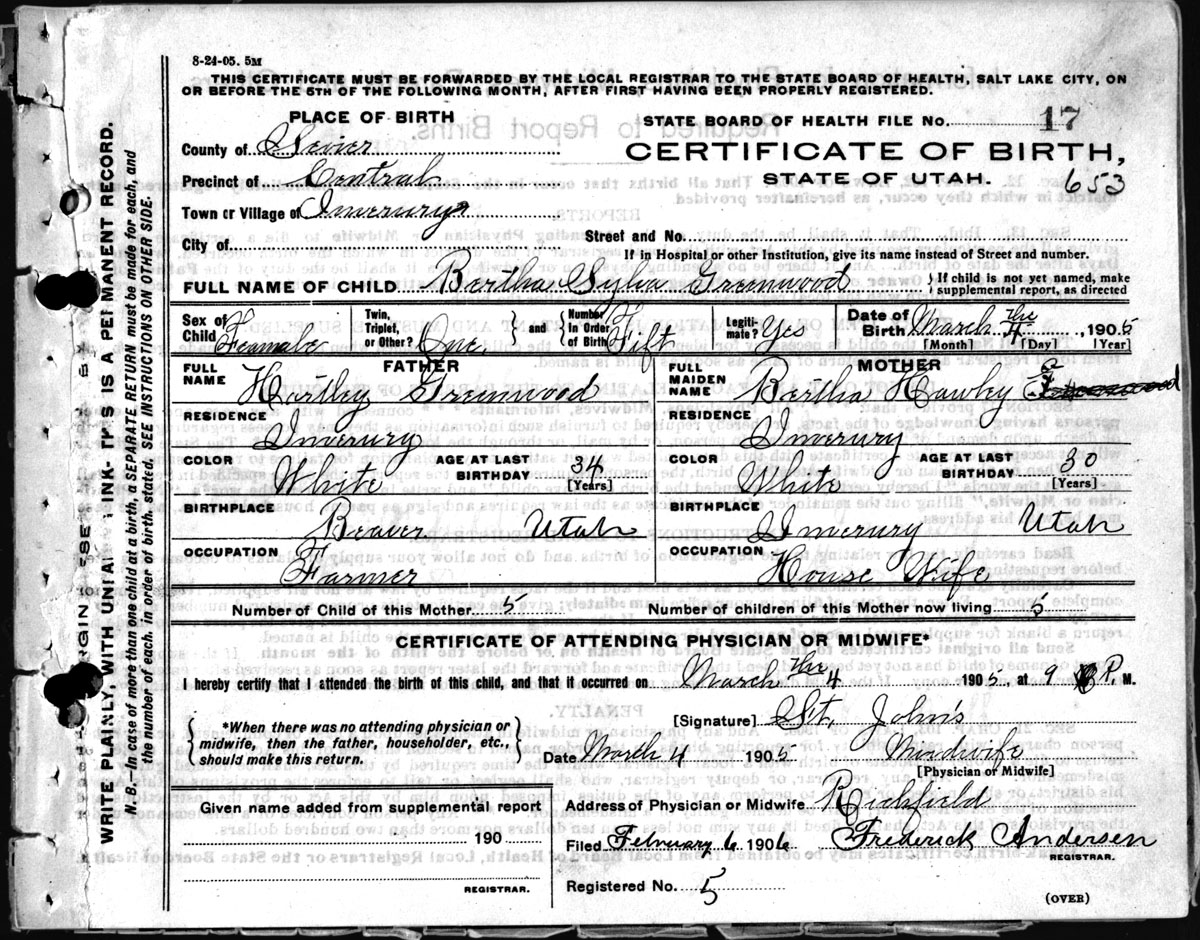 8-24-05. 5M
THIS CERTIFICATE MUST BE FORWARDED BY THE LOCAL REGISTRAR TO THE STATE BOARD OF HEALTH, SALT LAKE CITY, ON
OR BEFORE THE 5TH OF THE FOLLOWING MONTH, AFTER FIRST HAVING BEEN PROPERLY REGISTERED.
PLACE OF BIRTH
County of Sevier
Precinct of Central
Town or Village of Inverury
City of
STATE BOARD OF HEALTH FILE No. 17
CERTIFICATE OF BIRTH,
STATE OF UTAH. 653
Street and No.
If in Hospital or other Institution, give its name instead of Street and number.
FULL NAME OF CHILD Bertha Sylva Greenwood
If child is not yet named, make
supplemental report, as directed
Sex of Child Feamale
Twin, Triplet, or Other? One.
and Number In Order of Birth Fift
Legitimate? Yes
Date of Birth March the 4, 1905
[Month] [Day] [Year]
FATHER
FULL NAME Hartley Greenwood
RESIDENCE
Inverury
COLOR White
AGE AT LAST BIRTHDAY 34
[Years]
BIRTHPLACE
Beaver Utah
OCCUPATION
Farmer
MOTHER
FULL MAIDEN NAME Bertha Hawley
RESIDENCE
Inverury
COLOR White
AGE AT LAST BIRTHDAY 30
[Years]
BIRTHPLACE
Inverury Utah
OCCUPATION
House Wife
Number of Child of this Mother 5 Number of children of this Mother now living 5
CERTIFICATE OF ATTENDING PHYSICIAN OR MIDWIFE*
I hereby certify that I attended the birth of this child, and that it occurred on March the 4 1905, at 9 P. M.
*When there was no attending physician or
midwife, then the father, householder, etc.,
should make this return.
[Signature] St. John's
Date March 4 1905 Midwife
[Physician or Midwife]
Given name added from supplemental report
190
REGISTRAR.
Address of Physician or Midwife Richfield
Filed February 6 1906 Frederick Andersen
REGISTRAR.
Registered No. 5
(OVER)
WRITE PLAINLY, WITH INK-THIS IS A PERMANENT RECORD.
N. B.—In case of more than one child at a birth, a SEPARATE RETURN must be made for each, and
the number of each, in order of birth, stated. SEE INSTRUCTIONS ON OTHER SIDE.